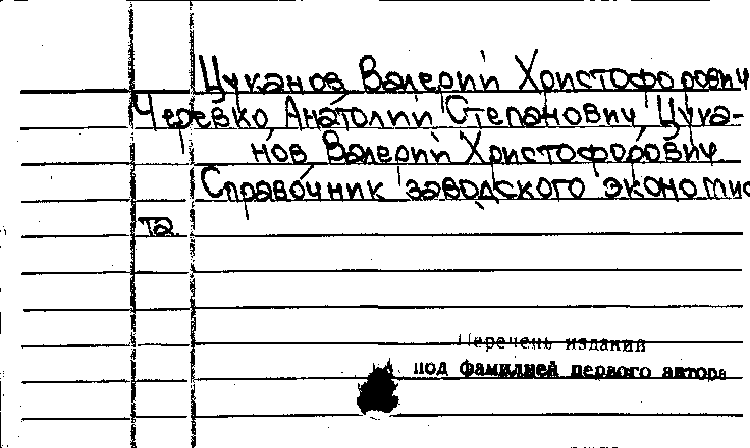 Цуканов Валерий Христофорович
Черевко Анатолий Степанович Цука-
нов Валерий Христофорович
Справочник заводского экономис
та.
Перечень изданий
под фамилией первого автора